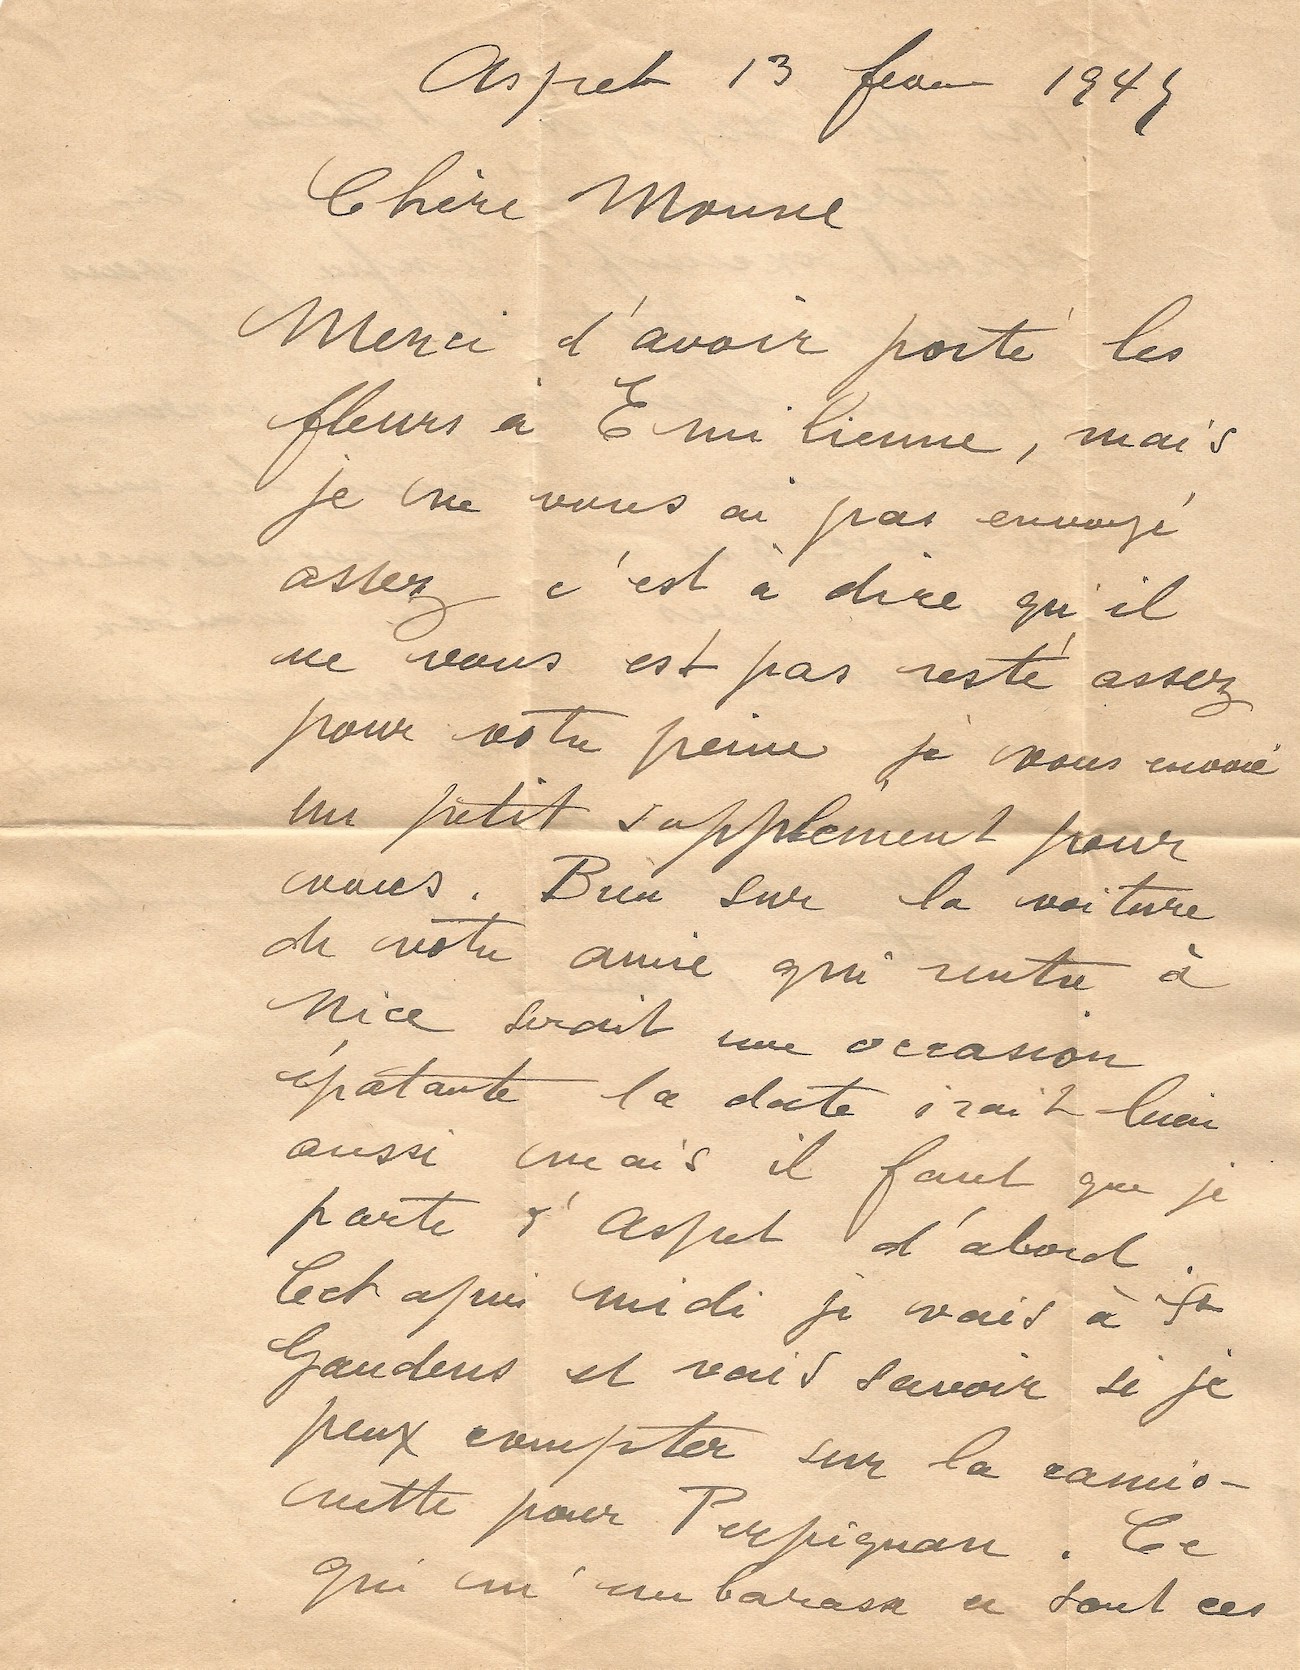 Aspet 13 fevr 1945
Chère Moune
Merci d'avoir porté les
fleurs à Emilienne, mais
je ne vous ai pas envoyé
assez c'est à dire qu'il
ne vous est pas resté assez
pour votre peine je vous envoie
un petit supplément pour
vous. Bien sur la voiture
de votre amie qui rentre à
Nice serait une occasion
épatante la date irait bien
aussi mais il faut que je
parte d'Aspet d'abord.
Cet apres midi je vais à St
Gaudens et vais savoir si je
peux compter sur la camio-
nette pour Perpignan. Ce
qui m'embarasse ce sont ces